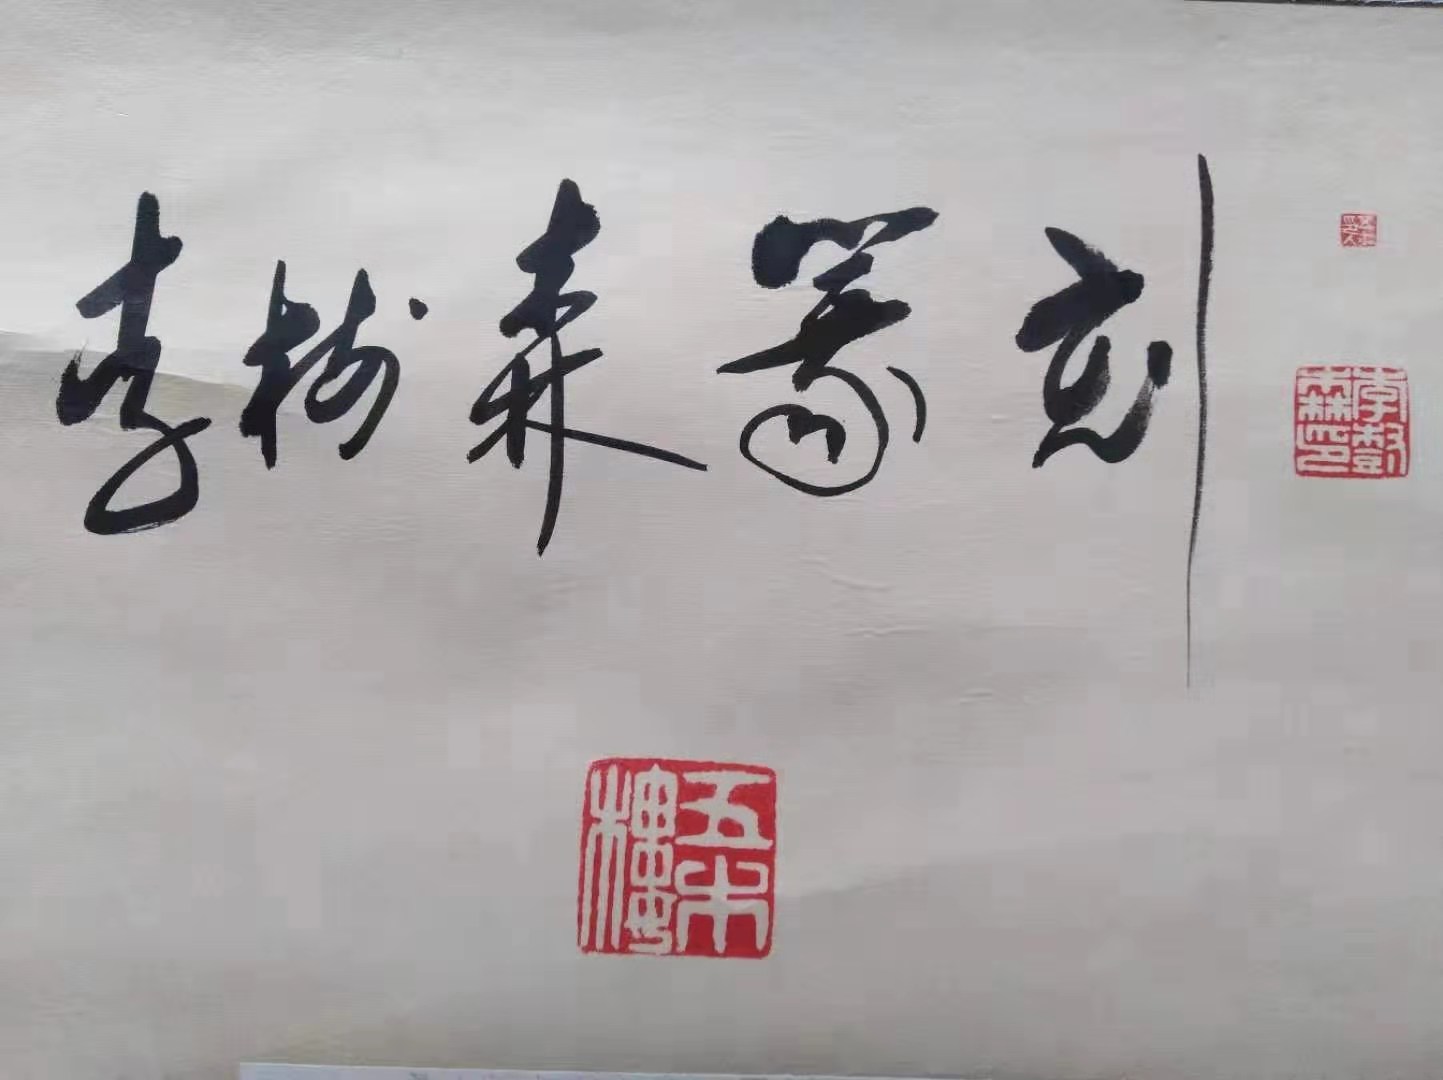 李树森篆刻
李樹森印
五木樓